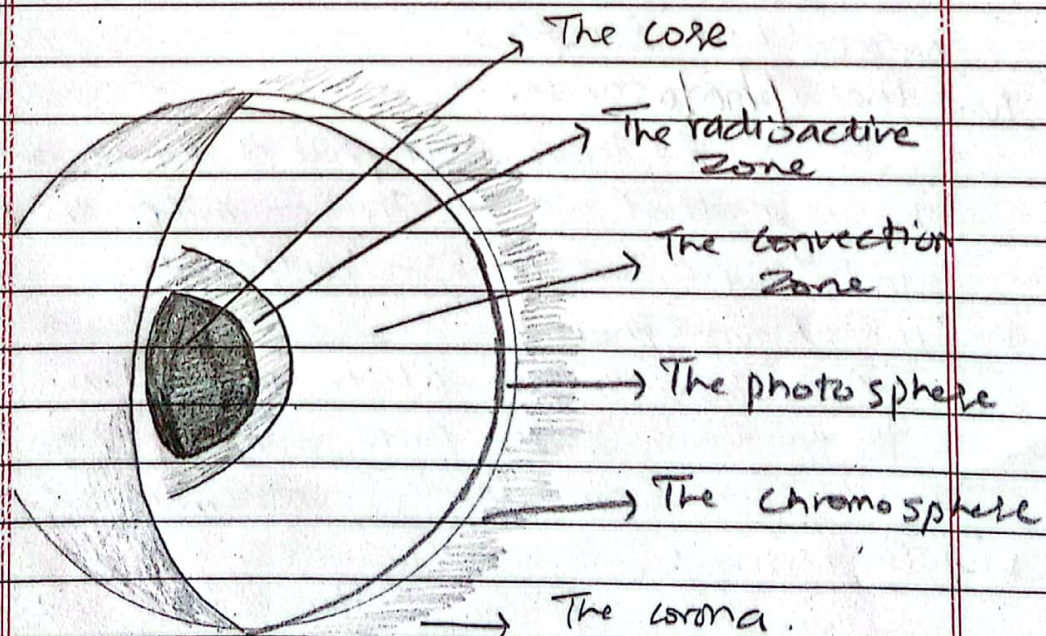 The core
The radioactive
zone
The convection
zone
The photosphere
The chromosphere
The corona.